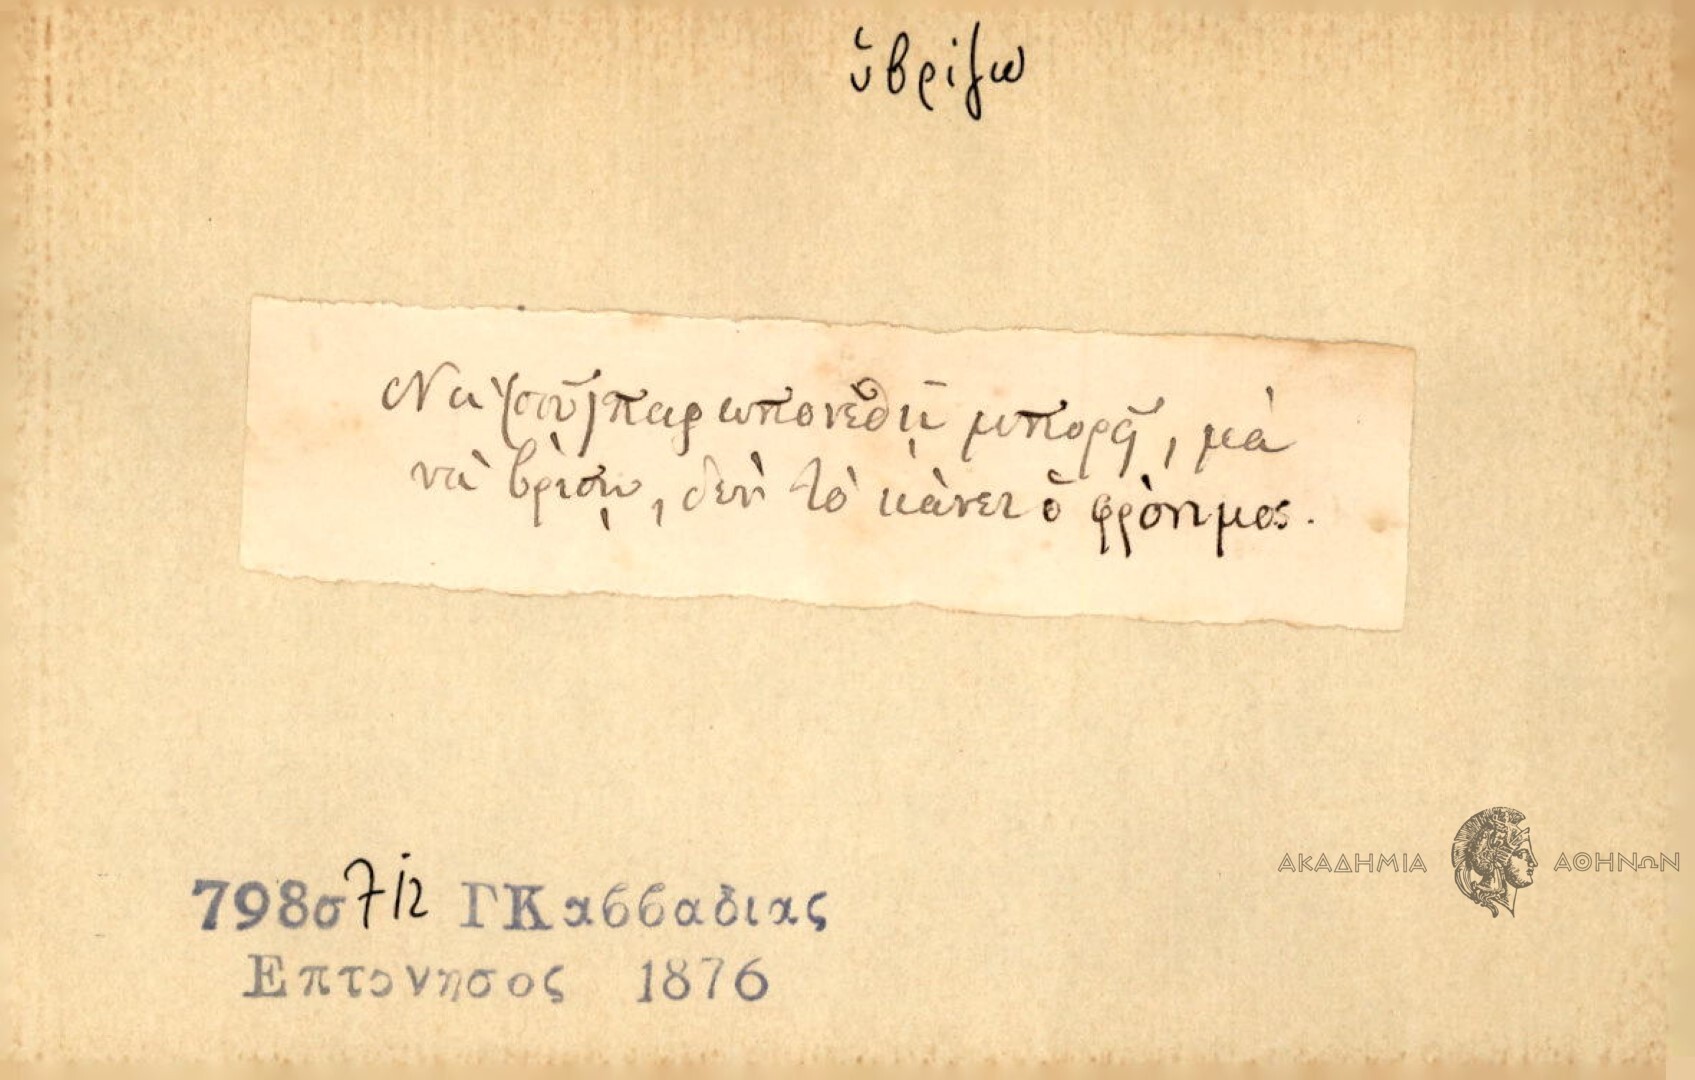 ὑβρίζω
Νὰ (σοῦ) παραπονεθῇ μπορεῖ, μὰ
νὰ βρίσῃ, δὲν τὸ κάνει ὁ φρόνιμος.
798σ 7/2 ΓΚαββαδιας
Επτονησος 1876
ΑΚΑΔΗΜΙΑ ΑΘΗΝΩΝ